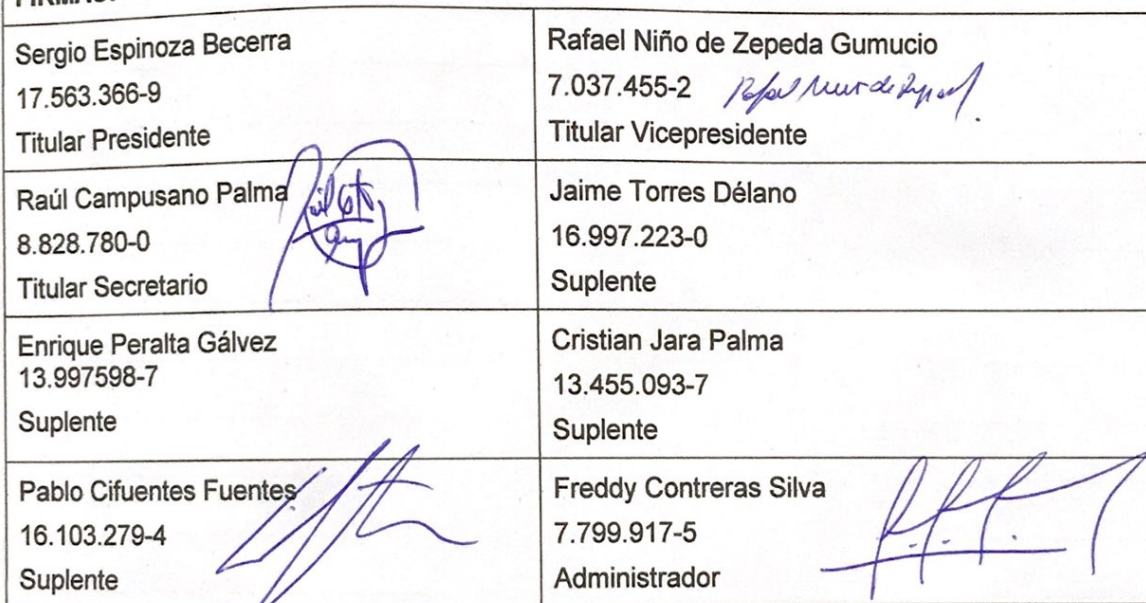 FIRMAS:
Sergio Espinoza Becerra
17.563.366-9
Titular Presidente
Rafael Niño de Zepeda Gumucio
7.037.455-2
Titular Vicepresidente
Raúl Campusano Palma
8.828.780-0
Titular Secretario
Jaime Torres Délano
16.997.223-0
Suplente
Enrique Peralta Gálvez
13.997598-7
Suplente
Cristian Jara Palma
13.455.093-7
Suplente
Pablo Cifuentes Fuentes
16.103.279-4
Suplente
Freddy Contreras Silva
7.799.917-5
Administrador